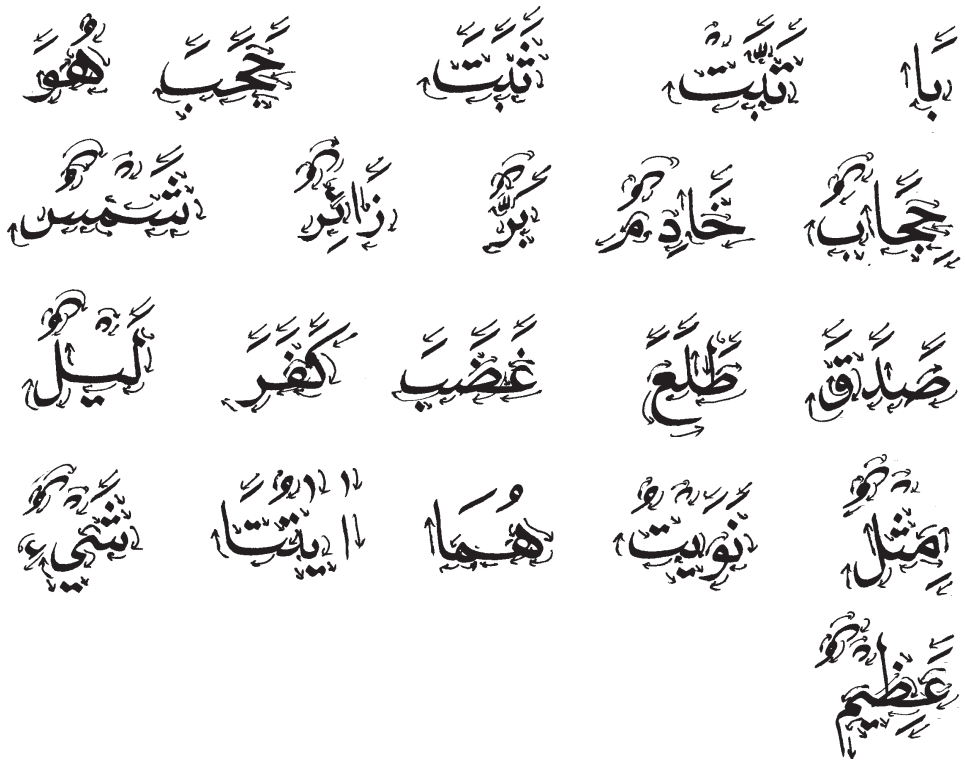 بَا تَبَّتْ ثَبَتَ حَجَبَ هُوَ
حِجَابٌ خَادِمٌ بَرٌّ زَائِرٌ شَمْسٌ
صَدَقَ طَلَعَ غَضَبَ كَفَرَ لَيْلٌ
مِثْلٌ نَوَيْتُ هُمَا شَيْءٌ
عَظِيمٌ